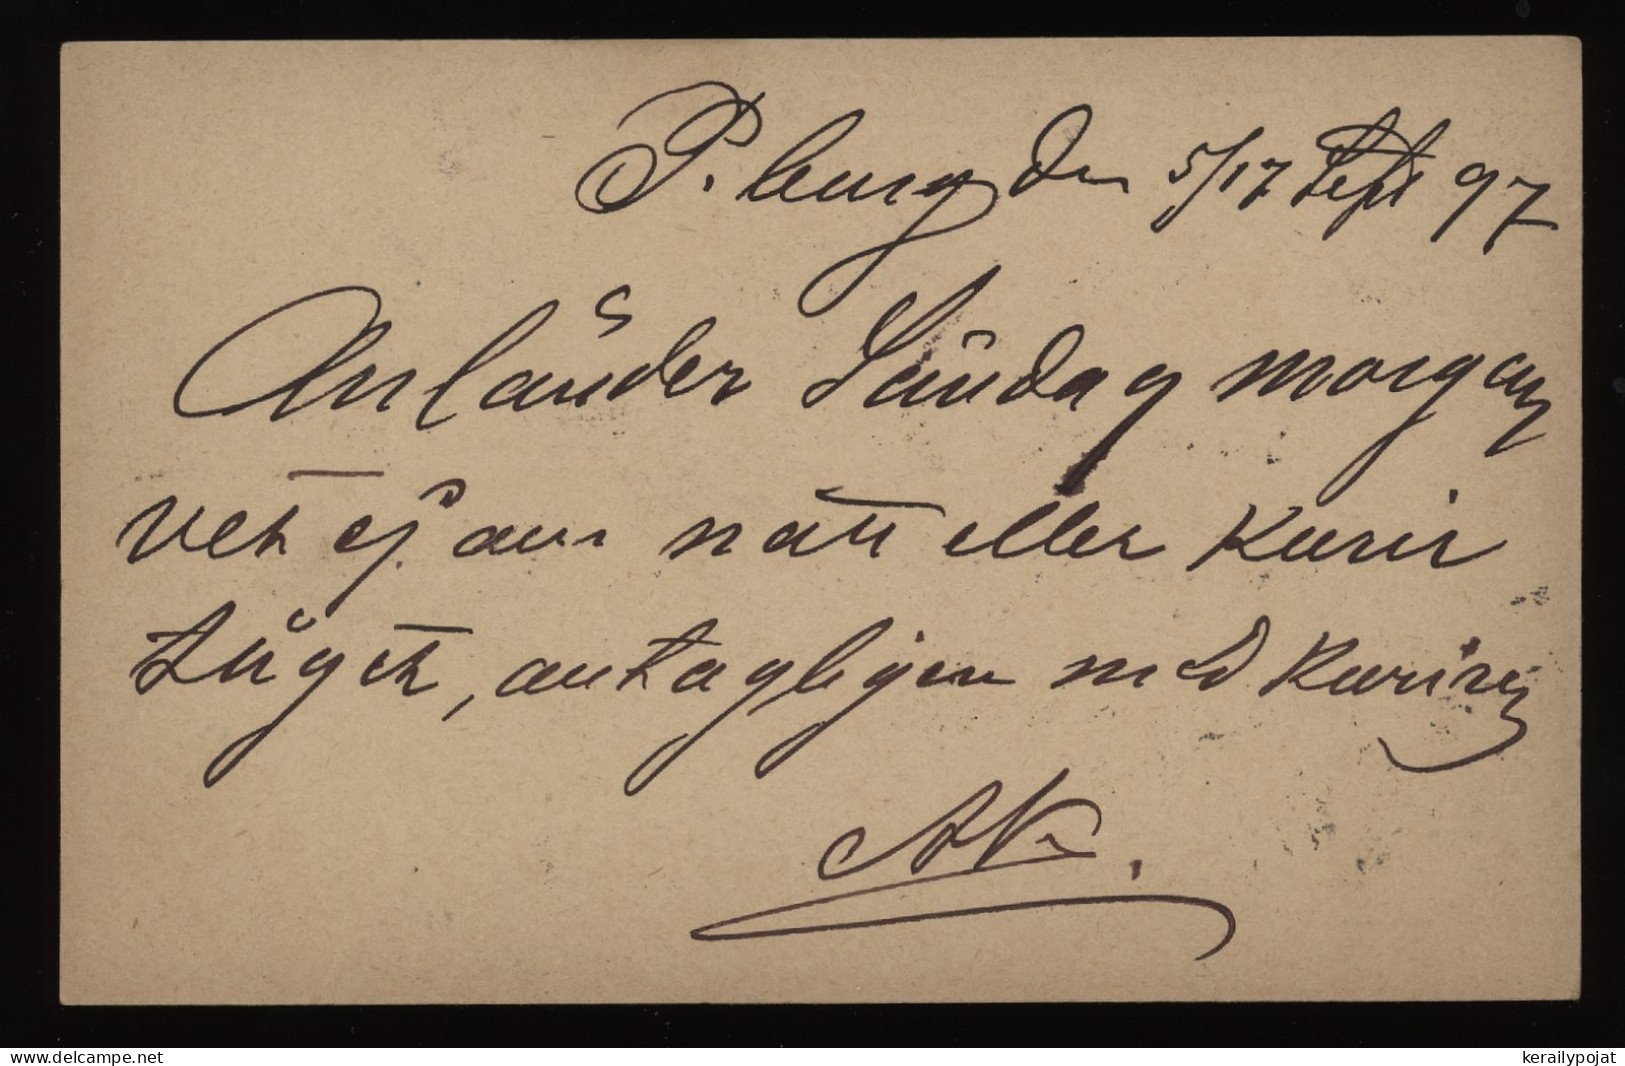 P.burg den 5/17 Sept 97
Anländer Söndag morgon
vet ej om natt eller Kurir
tåget, antagligen med Kuriren
AK.
www.delcampe.net
kerailypojat